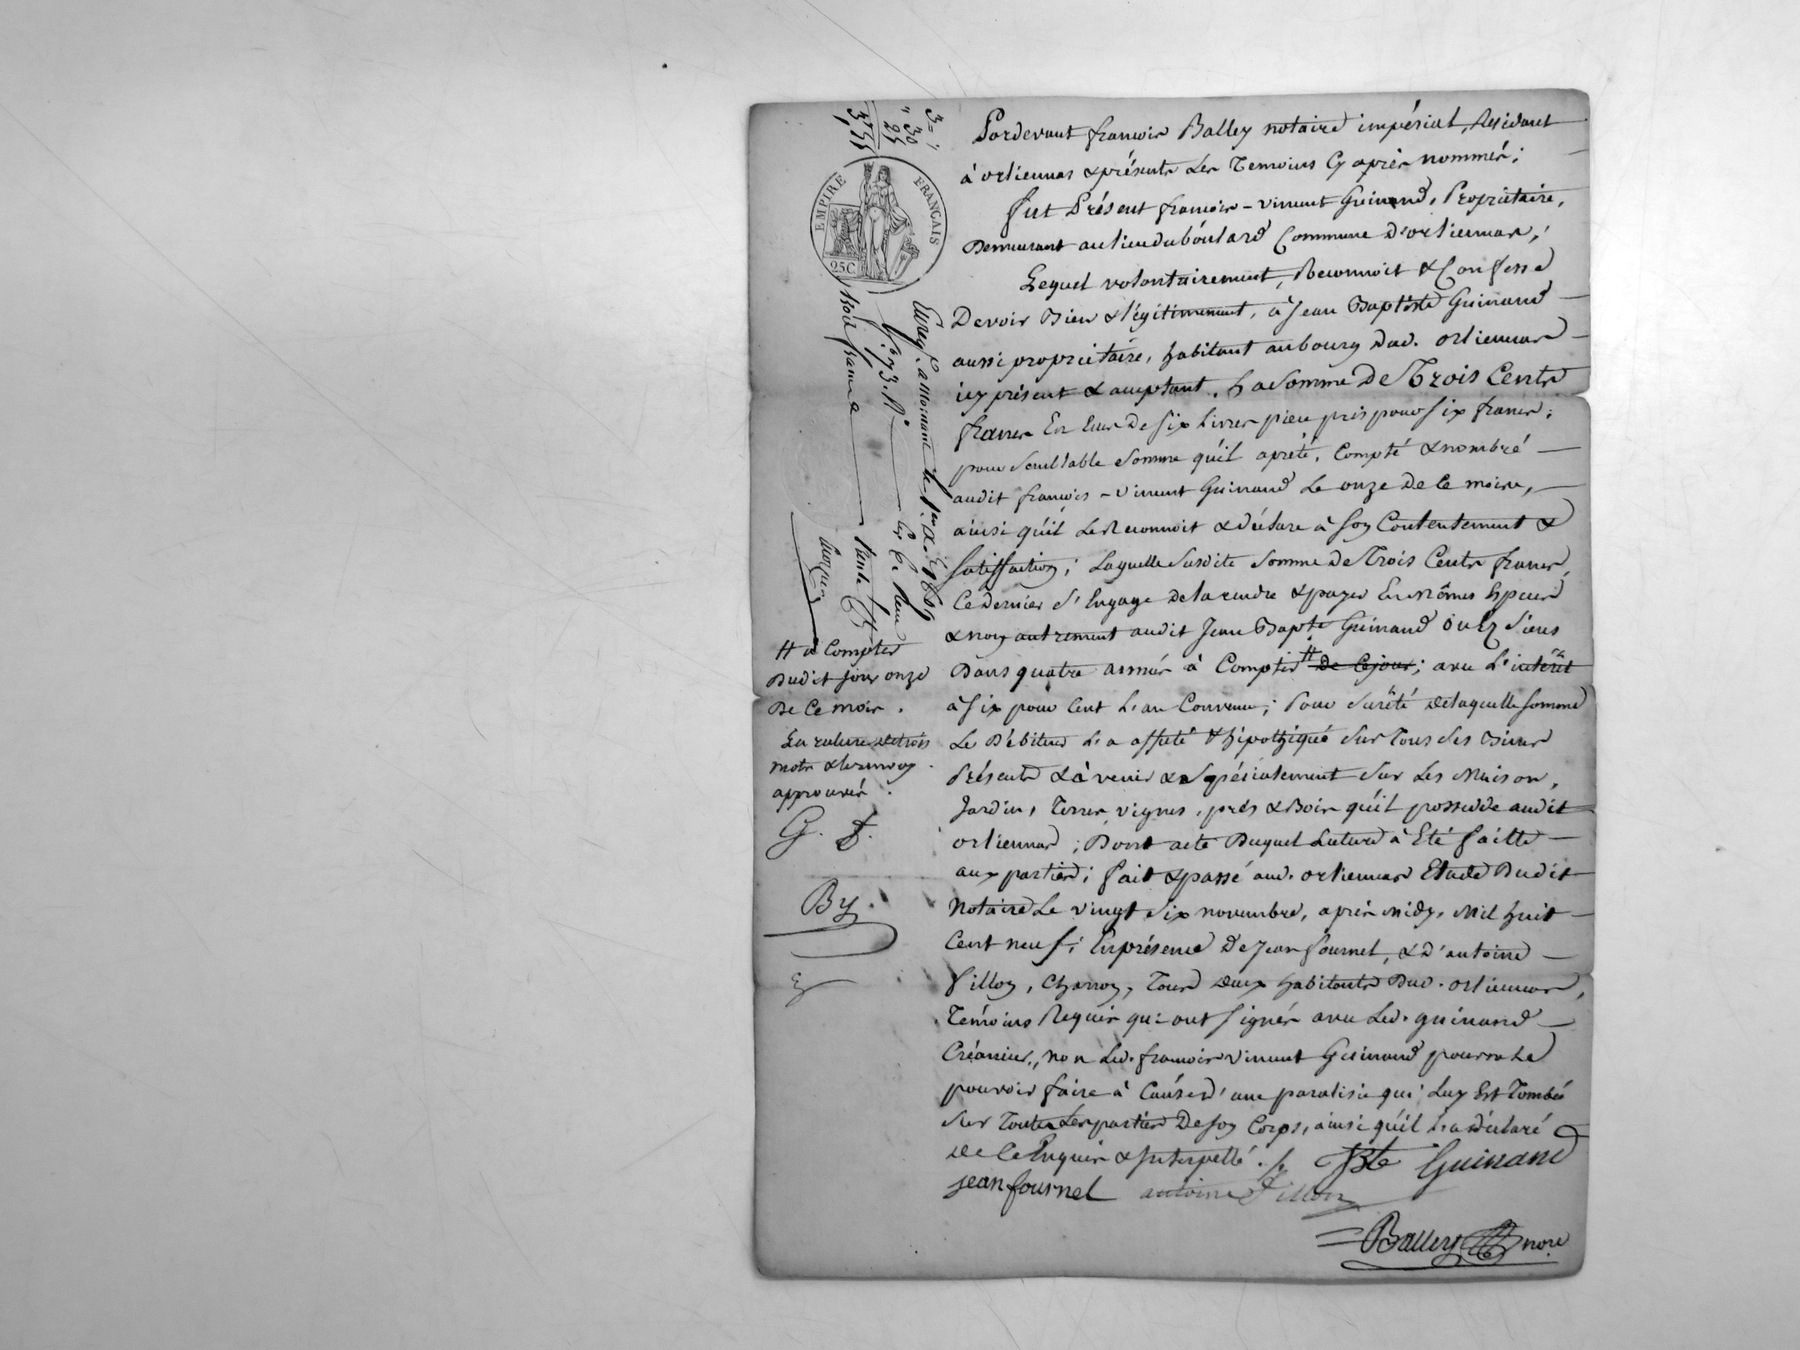 Pardevant françois Balley notaire impérial, Résidant
à orliennas & présents Les Temoins Cy après nommés;
fut Présent françois-vincent Guinand, Propriétaire,
Demeurant au lieu du boulard Commune d'orliennas;
Lequel volontairement, Reconnoit & Confesse
Devoir Bien & légitimement, à Jean Baptiste Guinand
aussi propriétaire, habitant au bourg dud. orliennas
icy présent & acceptant, La Somme De Trois Cents
francs En Ecus De Six Livres pièce pris pour Six francs;
pour Semblable Somme qu'il a prêté, Compté & nombré
audit françois-vincent Guinand Le onze De Ce mois,
ainsi qu'il Le Reconnoit & déclare à Son Contentement &
Satisfaction; Laquelle Susdite Somme De Trois Cents francs,
Ce Dernier s'Engage de la rendre & payer En mêmes Espèces
& non autrement audit Jean Bapte Guinand ou Es Siens
Dans quatre années à Compter # de Ce jour; avec L'intérêt
à Six pour Cent L'an Convenu; Pour Sûrêté de laquelle Somme
Le Débiteur L'a affecté & hipothiqué Sur Tous Ses Biens
Présents & à venir & Spécialement Sur Les Maison,
Jardin, Terres, vignes, prés & Bois qu'il possede audit
orliennas; Dont acte Duquel Lecture à Eté faitte
aux parties; fait & passé aud. orliennas Etude Dudit
Notaire Le vingt Six novembre, après midy, Mil huit
Cent neuf; En présence De Jean fournel, & D'antoine
fillon, Charron, Tous deux habitants Dud. orliennas,
Témoins Requis qui ont Signés avec Led. guinand
Créancier, non Led. françois vincent Guinand pour ne Le
pouvoir faire à Cause d'une paralisie qui Luy Est Tombée
Sur Toutes Les parties De Son Corps, ainsi qu'il L'a déclaré
de Ce Enquis & Interpellé.
JBte Guinand
jean fournel antoine fillon
Balley nore
# à Compter
Dudit jour onze
De Ce mois.
La rature de trois
mots & le renvoy
approuvés.
G. f.
By.
3=
" 30
25
EMPIRE FRANÇAIS
25C
Enreg. à Mornant le 1er Xbre 1809
fo 73. Ro
trois francs
trente